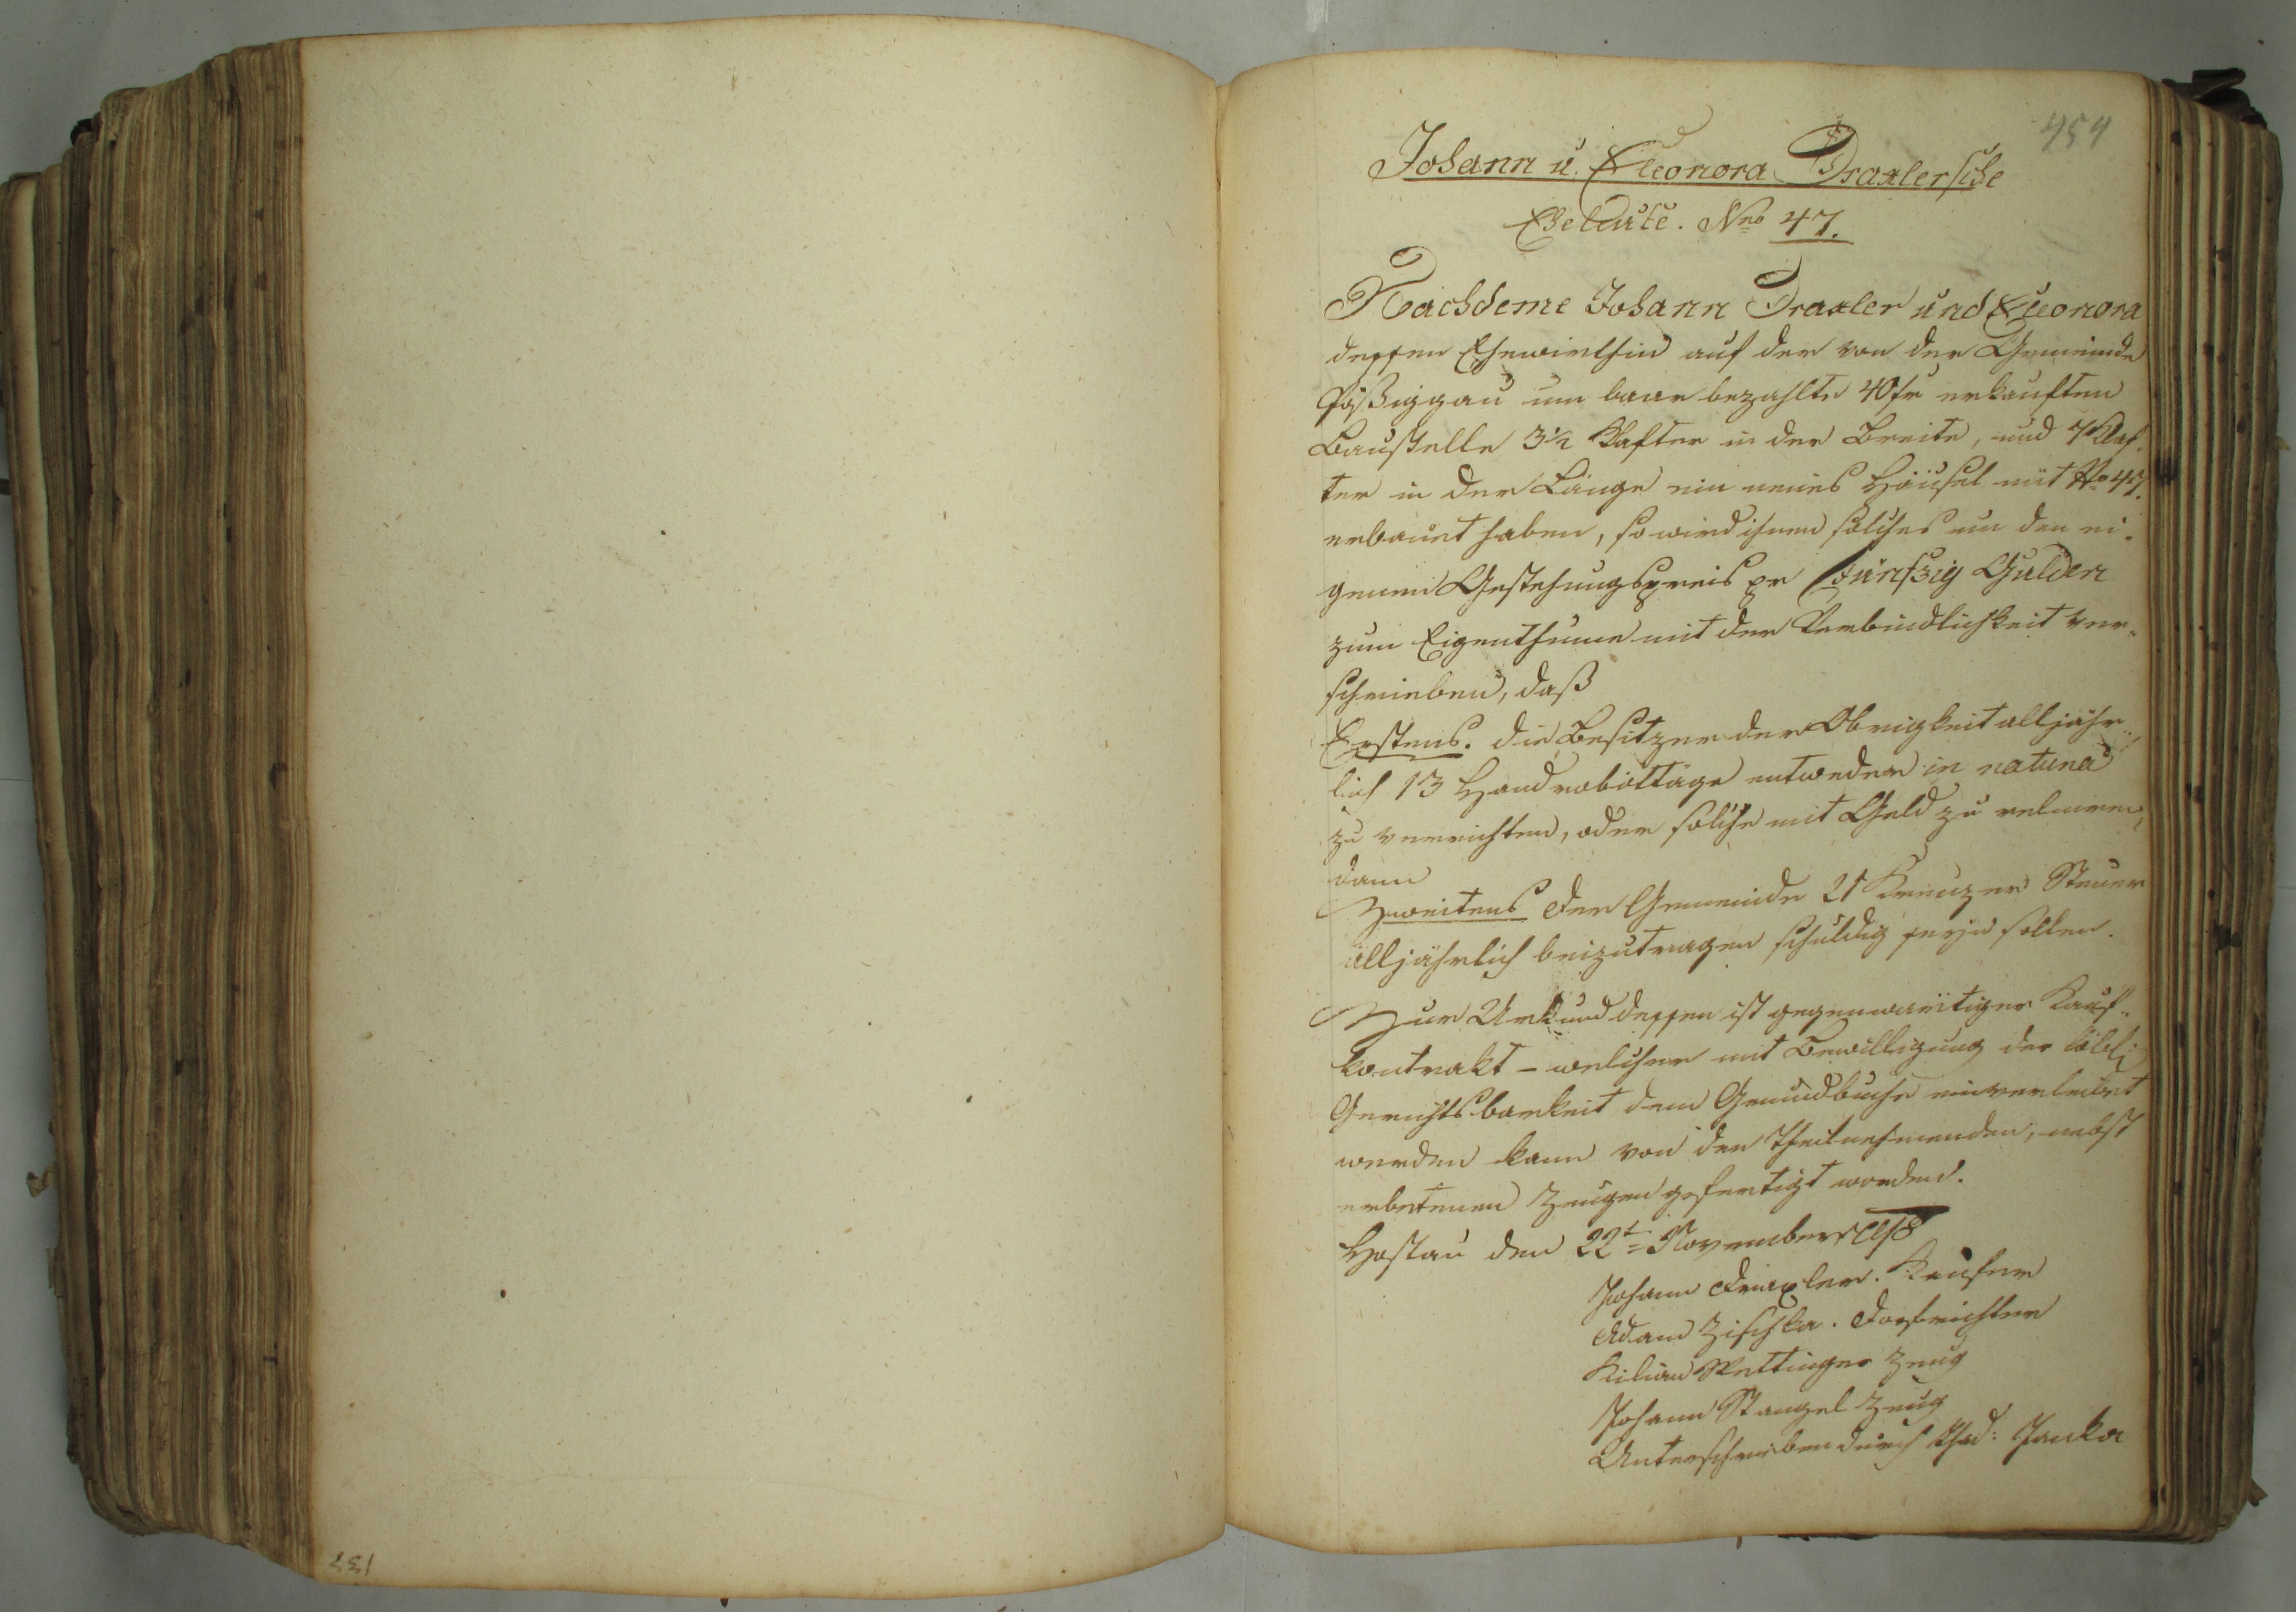 454
Johann u. Eleonora Draxlersche
Eheleute. Nro 47.
Nachdeme Johann Draxler und Eleonora
dessen Ehewirthin auf der von der Gemeinde
um baar bezahlte 40 fr erkauften
Baustelle 3½ Klafter in der Breite, und 7 Klaf-
ter in der Länge ein neues Häusel mit No 47.
erbauet haben, so wird ihnen solches um den ei-
genen Gestehungspreis pr Fünfzig Gulden
zum Eigenthume mit der Verbindlichkeit ver-
schrieben, daß
Erstens. die Besitzer der Obrigkeit alljähr-
lich 13 Handrobottäge entweder in natura
zu verrichten, oder solche mit Geld zu reluiren,
dann
Zweitens der Gemeinde 21 Kreuzer Steuer
alljährlich beizutragen schuldig seyn sollen.
Zur Urkund dessen ist gegenwärtiger Kauf-
kontrakt – welcher mit Bewilligung der löbl:
Gerichtsbarkeit dem Grundbuche einverleibet
werden kann von den Theilnehmenden, nebst
erbetenen Zeugen gefertigt worden.
Hostau den 22t November
Johann Draxler. Käufer
Adam Zischka. Dorfrichter
Kilian Pettinger Zeug
Johann Stangel Zeug
Unterschrieben durch Thad: Janka
137